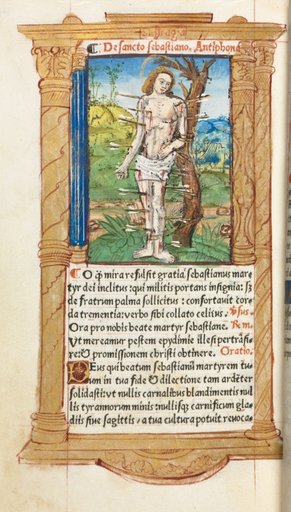 De sancto sebastiano. Antiphona
O q̃ mira refulsit gratia Sebastianus mar
tyr dei inclitus: qui militis portans insignia: Sʒ
de fratrum palma sollicitus: confortauit cor
da trementia: verbo sibi collato celitus. ℣sus.
Ora pro nobis beate martyr sebastiane. Re.
Ut mereamur pestem epydimie illesi pertrāsi
re: & promissionem christi obtinere. Oratio.
Deus qui beatum sebastianū martyrem tu
um in tua fide & dilectione tam ardēter
solidasti: vt nullis carnalibus blandimentis nul
lis tyrannorum minis: nullisqʒ carnificum gla
diis siue sagittis, a tua cultura potuit reuoca-